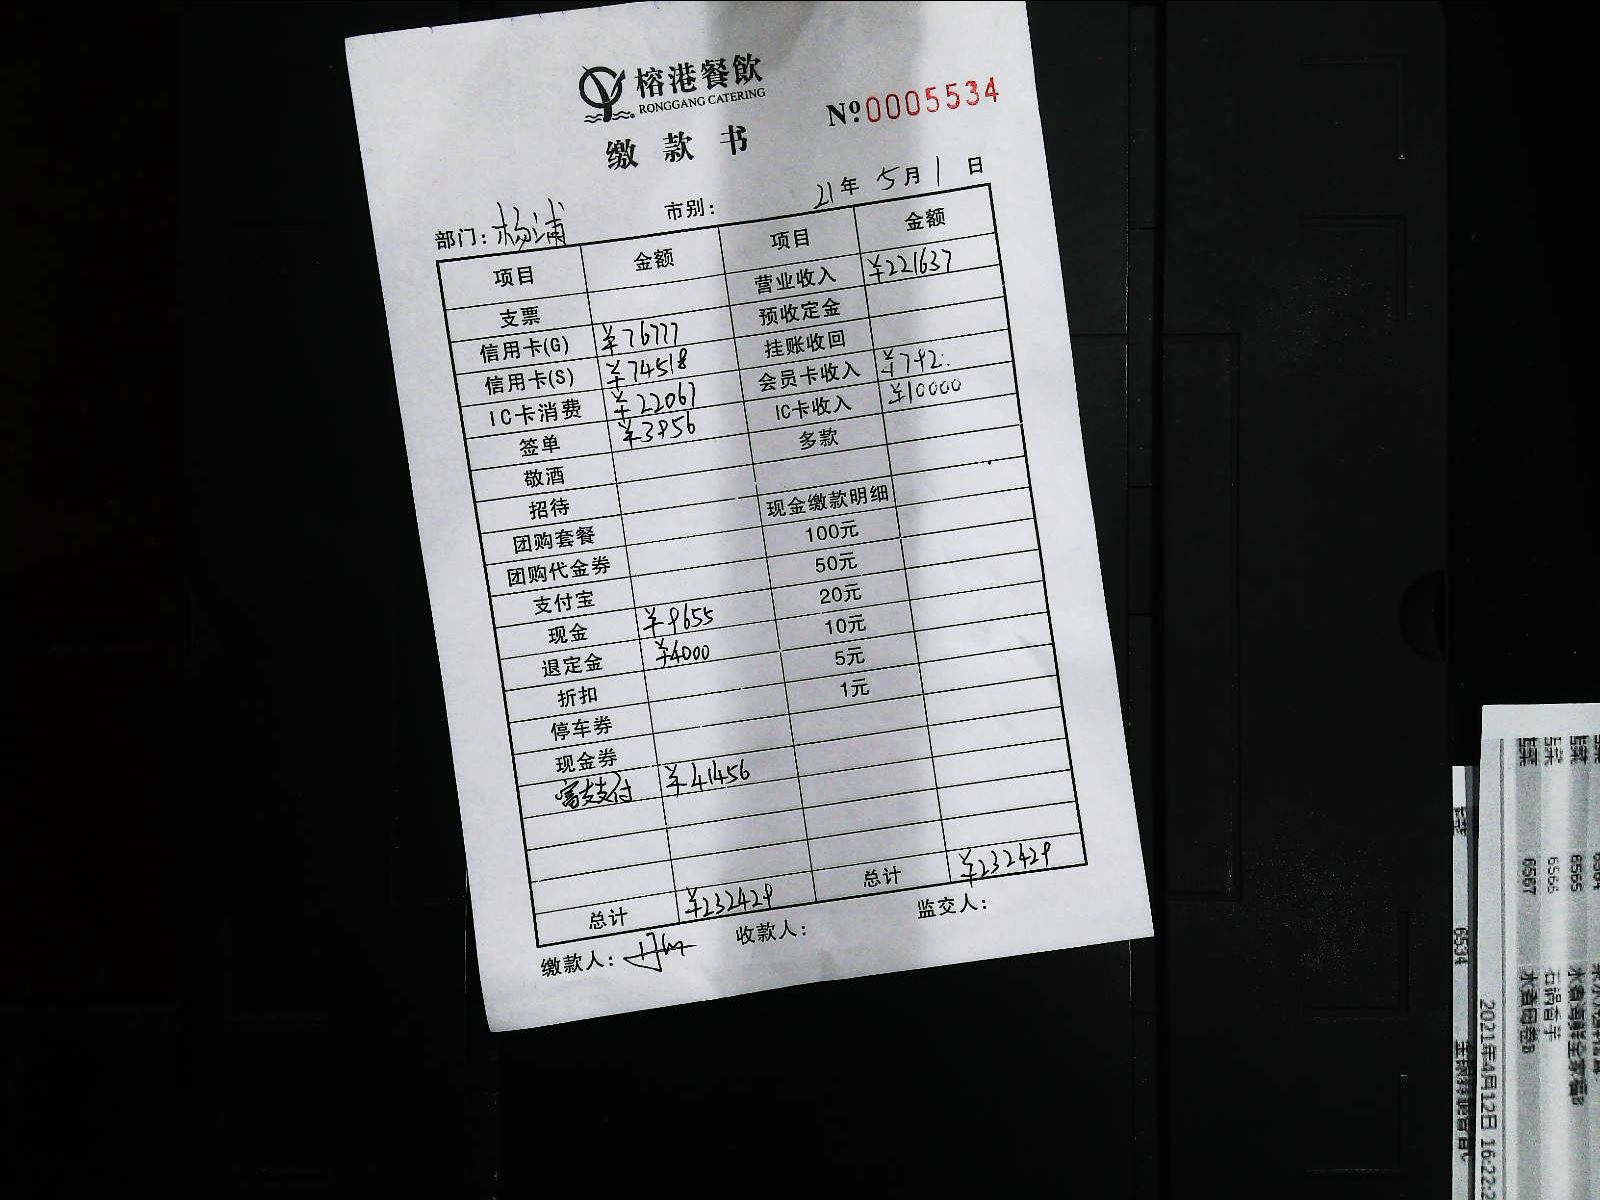 榕港餐飲
RONGGANG CATERING
缴款书
Nº:0005534
部门:杨浦 市别: 21年 5月 1 日
项目 金额 项目 金额
支票 营业收入 ¥221637
信用卡(G) ¥76777 预收定金
信用卡(S) ¥74518 挂账收回
IC卡消费 ¥22067 会员卡收入 ¥792.
签单 ¥3956 IC卡收入 ¥10000
敬酒 多款
招待
团购套餐 现金缴款明细
团购代金券 100元
支付宝 50元
现金 ¥9655 20元
退定金 ¥4000 10元
折扣 5元
停车券 1元
现金券
富友支付 ¥41456
总计 ¥232429 总计 ¥232429
缴款人: 收款人: 监交人:
6565
6566 石锅香芋
6567
6534
2021年4月12日 16:22: